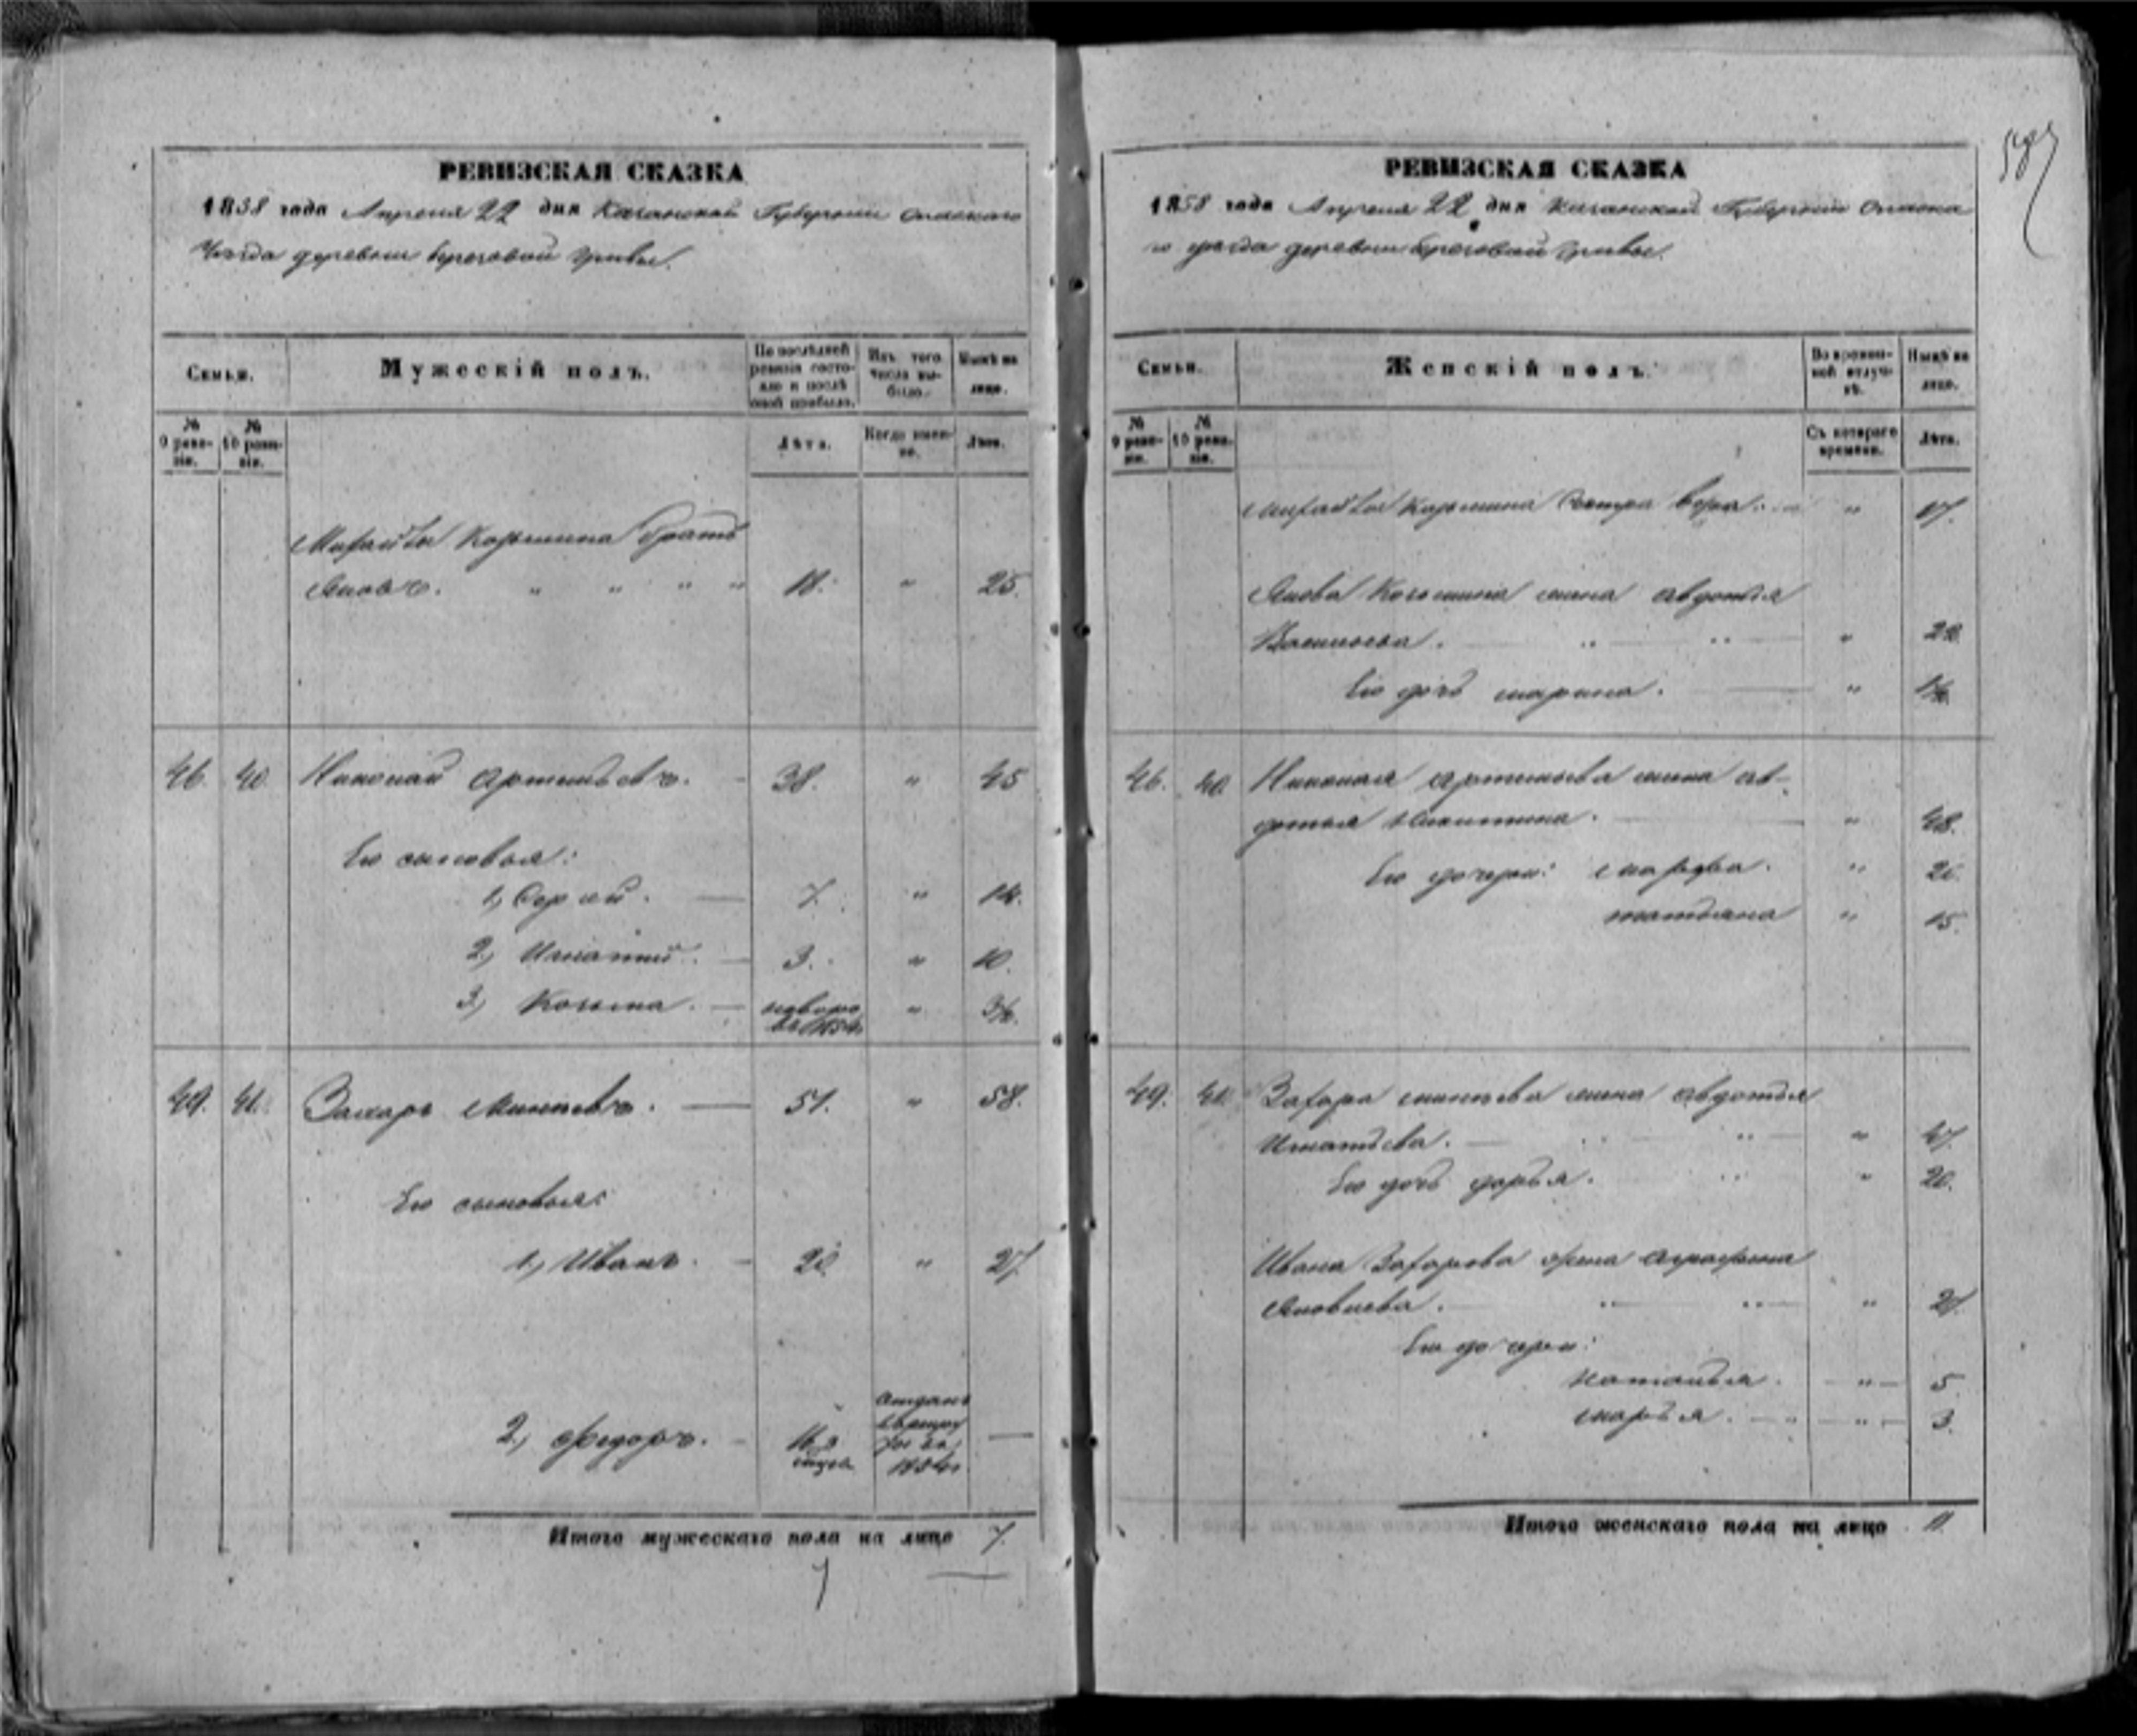 587
РЕВИЗСКАЯ СКАЗКА
1858 года Апреля 22 дня Казанской Губернии Спаскаго
Уезда деревни Береговой Гривы.
Семьи.
Мужескій полъ.
По послѣдней ревизіи состояло и послѣ оной прибыло.
Изъ того числа выбыло.
Нынѣ на лицо.
№ 9 ревизіи.
№ 10 ревизіи.
Лѣта.
Когда именно.
Лѣта.
Козьмина братъ
Яковъ. " " " " 18. " 25.
46. 40. Николай Артемьевъ. 38. " 45
Его сыновья:
1, Сергей. 7. " 14.
2, Игнатий. 3. " 10.
3, Козьма. " 3/6.
49. 41. Захаръ 51. " 58.
Его сыновья:
1, Иванъ. 20 " 27
2, Федоръ. 16
отданъ
въ рекру
1854
Итого мужескаго пола на лицо 7.
7
РЕВИЗСКАЯ СКАЗКА
1858 года Апреля 22 дня Казанской Губернии Спаска
го уезда деревни Береговой Гривы.
Семьи.
Женскій полъ.
Во временной отлучкѣ.
Нынѣ на лицо.
№ 9 ревизіи.
№ 10 ревизіи.
Съ котораго времени.
Лѣта.
Козьмина сестра Вера. " 17.
Якова Козьмина жена Авдотья
Васильева. " 22
Его дочь Марина. "
46. 40. Николая Артемьева жена Ав-
дотья Никитина. " 48.
Его дочери: Марфа. " 20.
Татьяна " 15.
49. 41. Захара жена Авдотья
Игнатьева. " 47.
Его дочь Дарья. " 20.
Ивана Захарова жена Аграфена
Яковлева. " 27.
Его дочери:
Наталья. " 5.
Марья. " 3.
Итого женскаго пола на лицо 11.